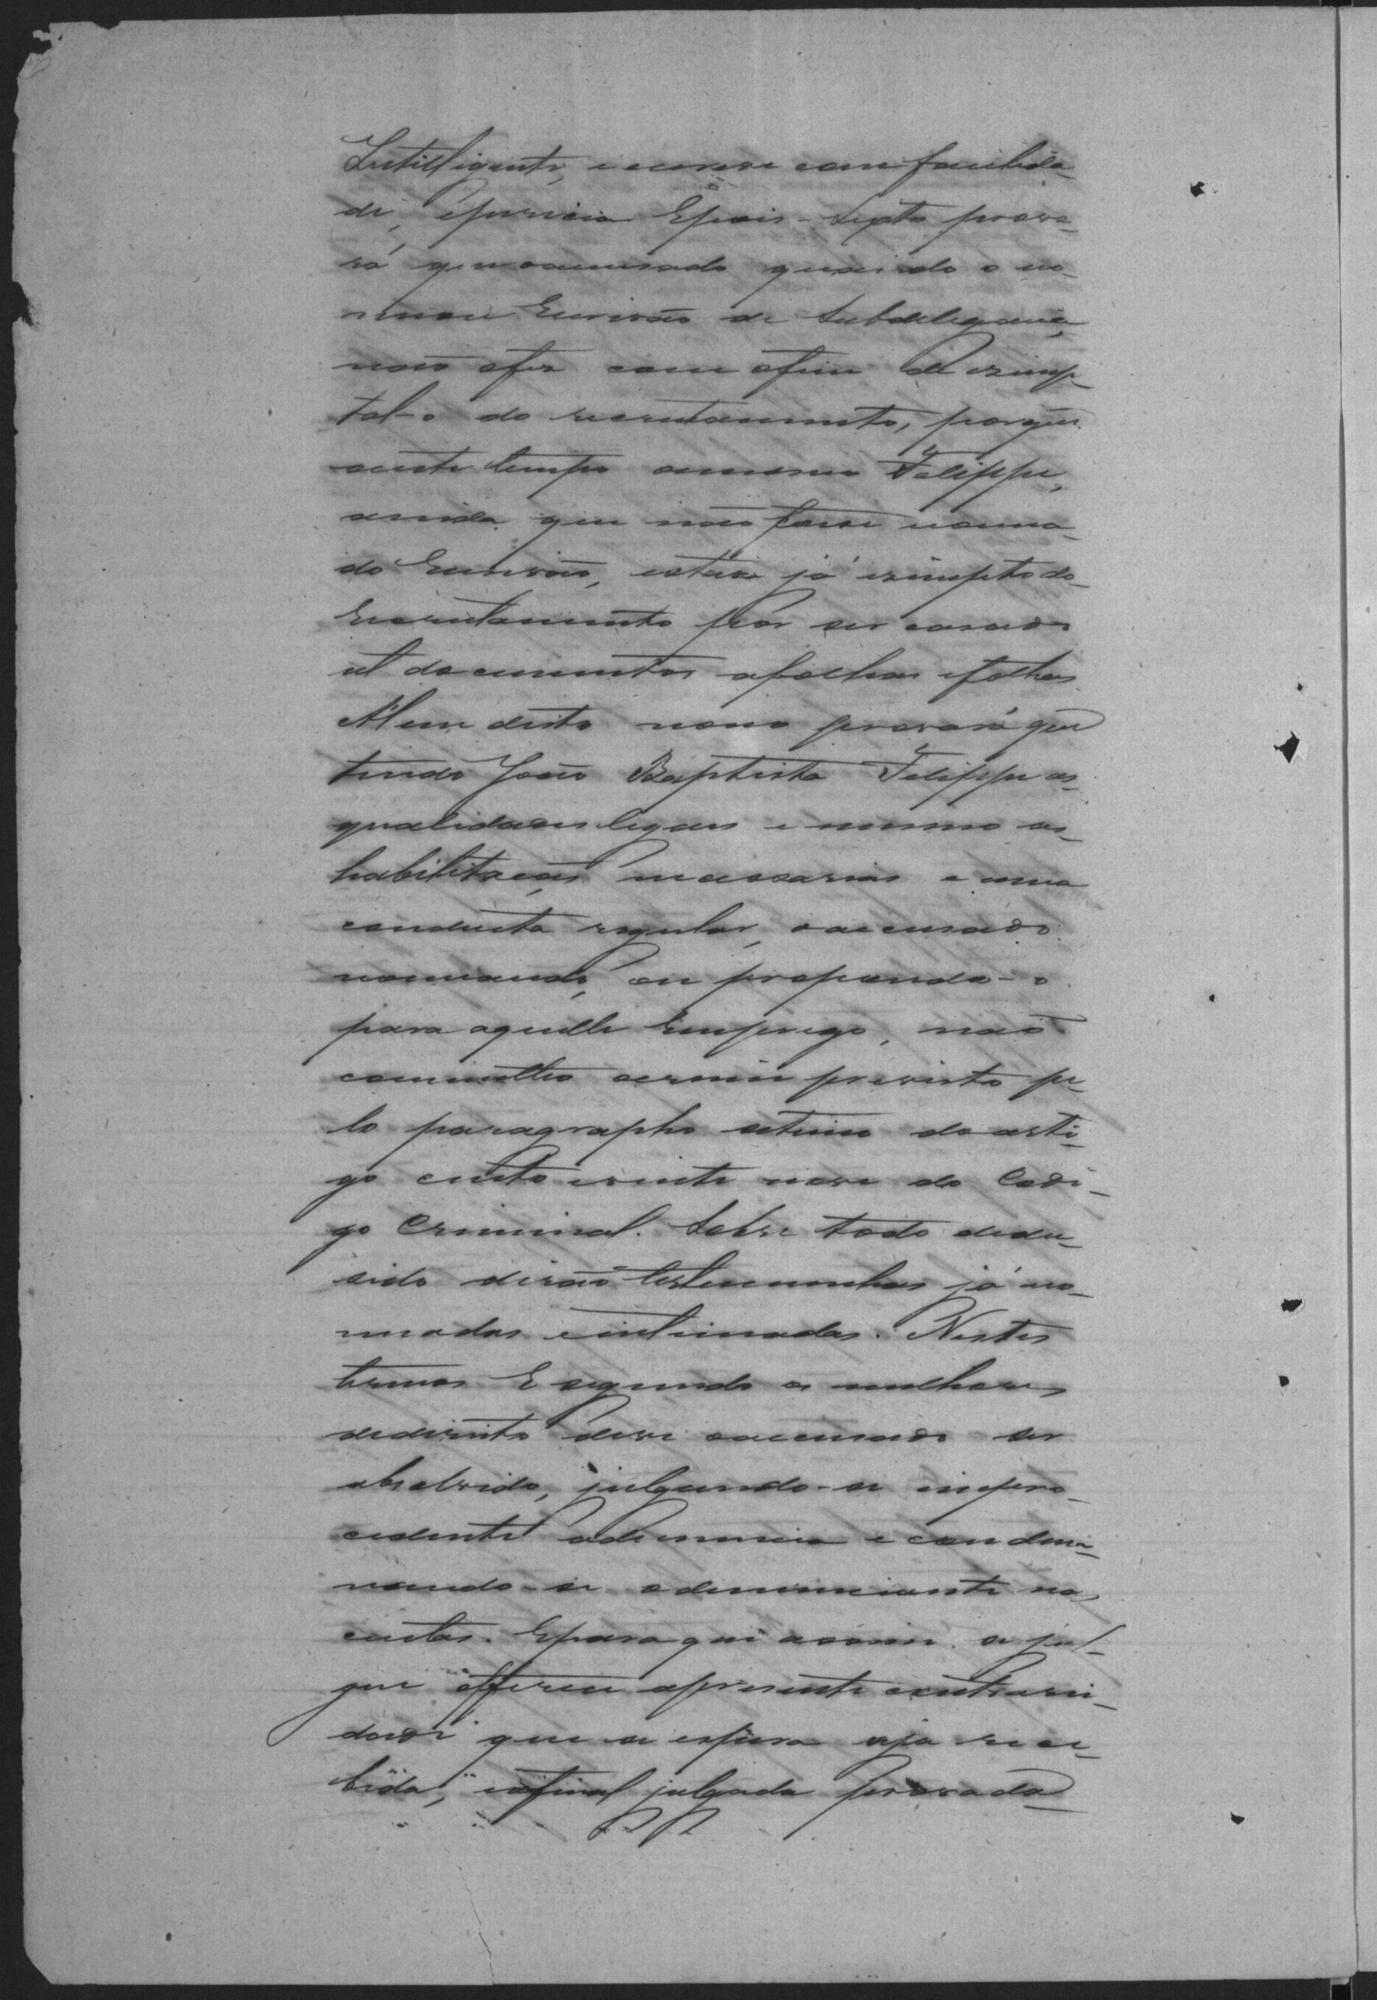 Intelligente, e escreve com facilida-
de, e pericia. E pois - Sexto provara
rá que o accusado quando o no-
meou Escrivão da Subdelegacia,
não o fez com o fim de izemp-
tal-o do recrutamento, porque
neste tempo o mesmo Felippe,
ainda que não fosse nomea-
do Escrivão, estava já izempto do
Recrutamento por ser casado
ut documentos a folhas e folhas
Alem disto provará que
tendo João Baptista Felippe as
qualidades legaes e mesmo as
habilitações necessarias e uma
conducta regular, o accusado
nomeando, ou propondo-o
para aquelle Emprego, não
commetteo o crime previsto pe-
lo paragrapho setimo do arti-
go cento e vinte nove do Codi-
go Criminal. Sobre todo dedu-
sido dirão testemunhas já no-
meadas e intimadas. Nestes
termos E segundo os melhores
de direito deve o accusado ser
absolvido, julgando-se impro-
cedente a denuncia e condem-
nando-se o denunciante nas
custas. E para que assim se jul-
gue offerece a presente contrarie-
dade que se espera seja rece-
bida, e afinal julgada provada